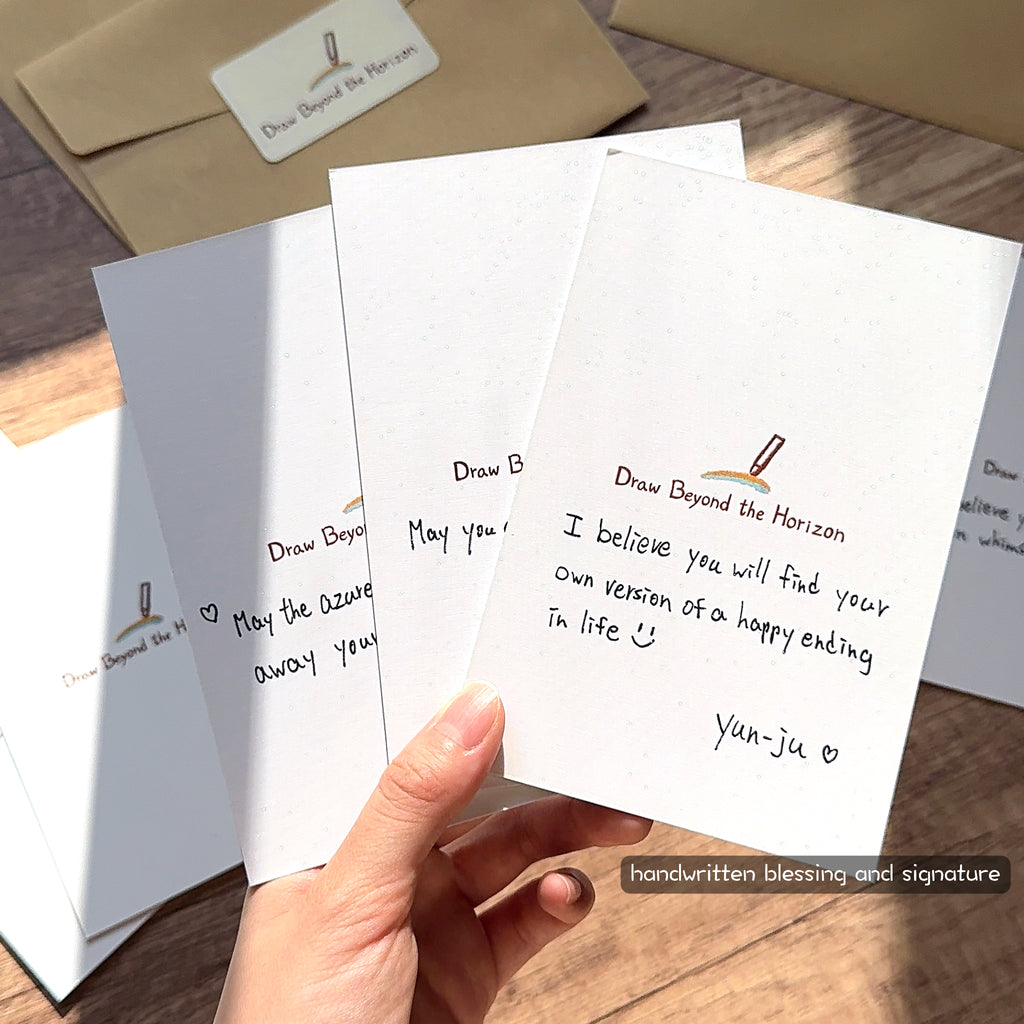 Draw Beyond the Horizon
Draw Beyond the Horizon
I believe you will find your
own version of a happy ending
in life
Yun-ju
Draw B
May you
Draw Beyo
May the azure
away your
Draw Beyond the H
Draw
elieve y
n whims
handwritten blessing and signature